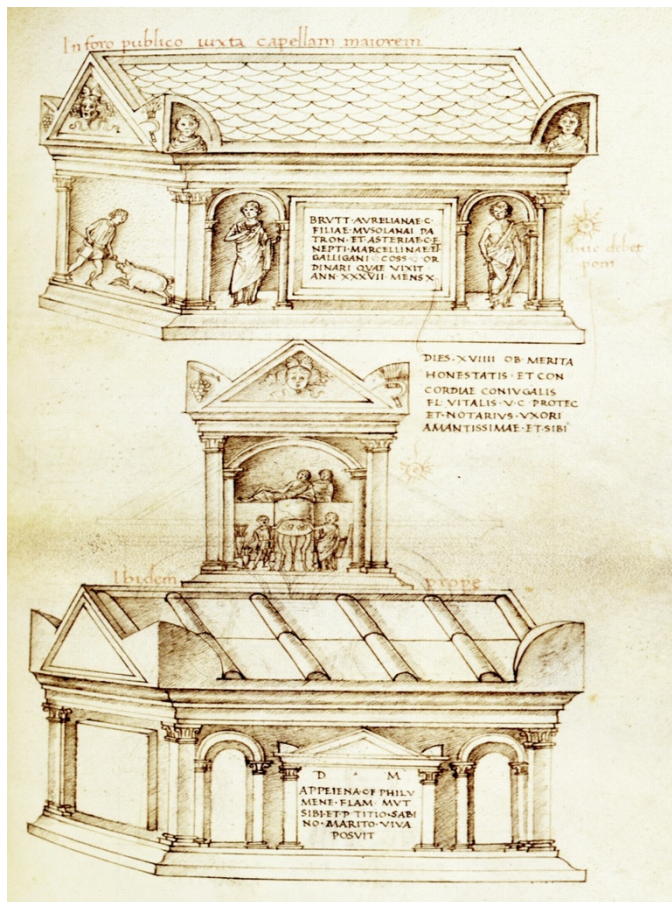 In foro publico iuxta capellam maiorem
BRVTT·AVRELIANAE·C·
FILIAE·MVSOLANAI PA
TRON·ET·ASTERIAE·C·F·
NEPTI·MARCELLINAE·ET
GALLIGANI COSS OR
DINARI QVAE VIXIT
ANN·XXXVII·MENS X
huic debet
poni
DIES·XVIIII OB MERITA
HONESTATIS·ET CON
CORDIAE CONIVGALIS
FL VITALIS·V·C·PROTEC
ET·NOTARIVS·VXORI
AMANTISSIMAE·ET·SIBI
Ibidem prope
D M
APPEIENA·C·F·PHILV
MENE·FLAM·MVT
SIBI·ET·P TITIO·SABI
NO·MARITO·VIVA
POSVIT